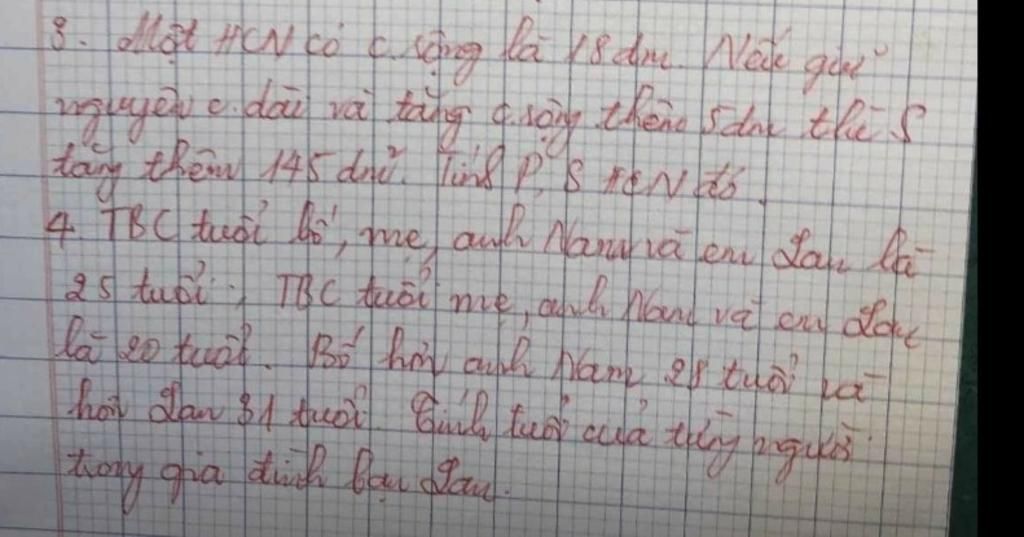 3. Một HCN có c.rộng là 18dm. Nếu giữ
nguyên c.dài và tăng c.rộng thêm 5dm thì S
tăng thêm 145 dm². Tính P, S HCN đó.
4. TBC tuổi bố, mẹ, anh Nam và em Lan là
25 tuổi; TBC tuổi mẹ, anh Nam và em Lan
là 20 tuổi. Bố hơn anh Nam 28 tuổi và
hơn Lan 31 tuổi. Tính tuổi của từng người
trong gia đình bạn Lan.